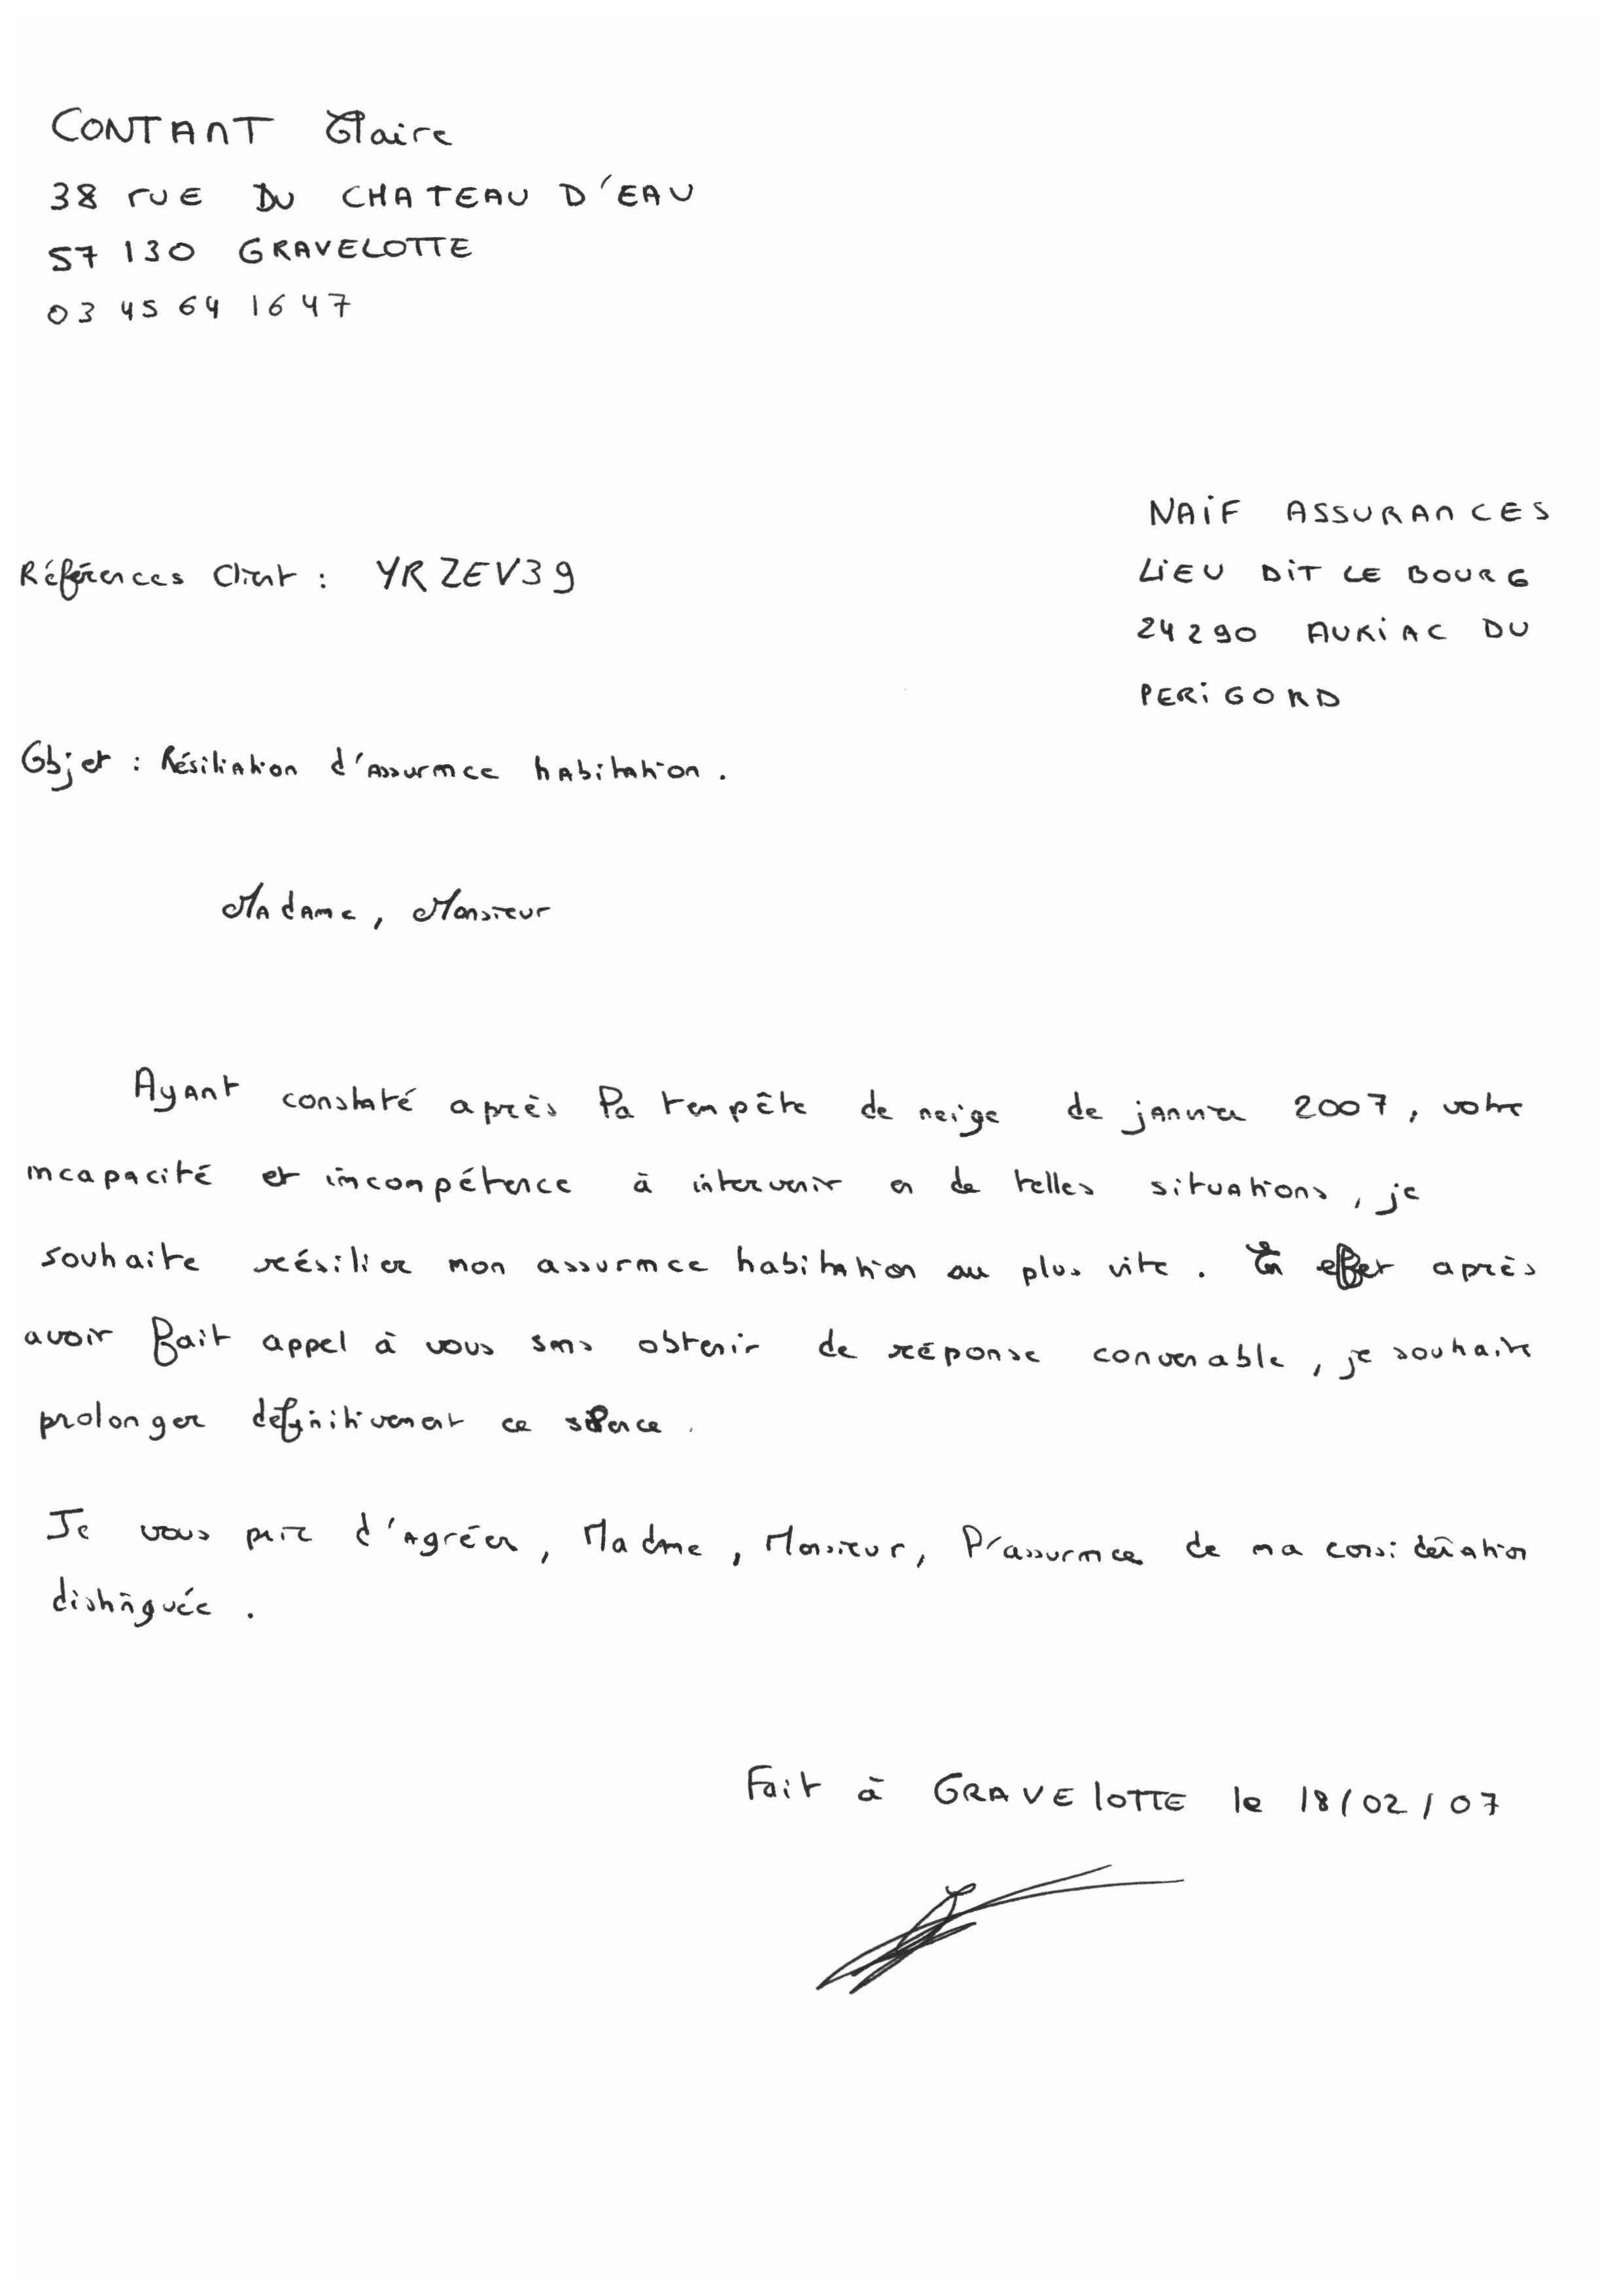 CONTANT Claire
38 RUE DU CHATEAU D'EAU
57 130 GRAVELOTTE
03 45 64 16 47
NAIF ASSURANCES
LIEU DIT LE BOURG
24290 AURIAC DU
PERIGORD
Références Client : YRZEV39
Objet : Résiliation d'assurance habitation.
Madame, Monsieur
Ayant constaté après la tempête de neige de janvier 2007, votre
incapacité et incompétence à intervenir en de telles situations, je
souhaite résilier mon assurance habitation au plus vite. En effet après
avoir fait appel à vous sans obtenir de réponse convenable, je souhaite
prolonger définitivement ce silence.
Je vous prie d'agréer, Madame, Monsieur, l'assurance de ma considération
distinguée.
Fait à GRAVELOTTE le 18/02/07